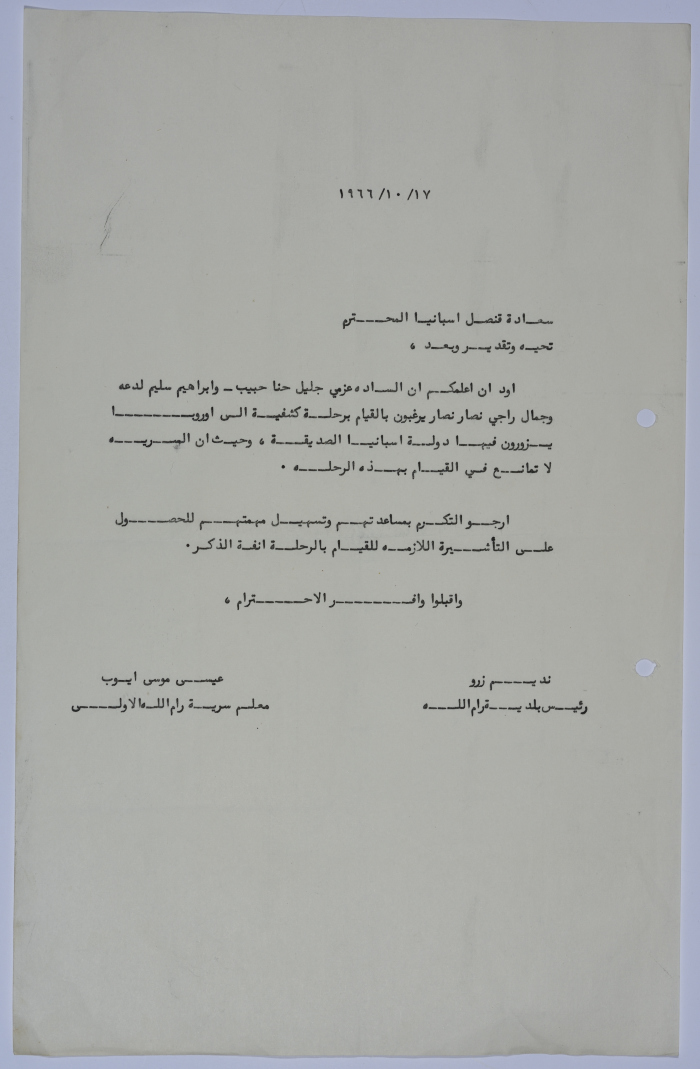 ١٩٦٦/١٠/١٧
سعادة قنصل اسبانيا المحترم
تحيه وتقدير وبعد ،
اود ان اعلمكم ان الساده عزمي جليل حنا حبيب - وابراهيم سليم لدعه
وجمال راجي نصار نصار يرغبون بالقيام برحلة كشفية الى اوروبا
يزورون فيها دولة اسبانيا الصديقة ، وحيث ان السريه
لا تمانع في القيام بهذه الرحله .
ارجو التكرم بمساعدتهم وتسهيل مهمتهم للحصول
على التأشيرة اللازمه للقيام بالرحلة انفة الذكر .
واقبلوا وافر الاحترام ،
نديم زرو
عيسى موسى ايوب
رئيس بلدية رام الله
معلم سرية رام الله الاولى